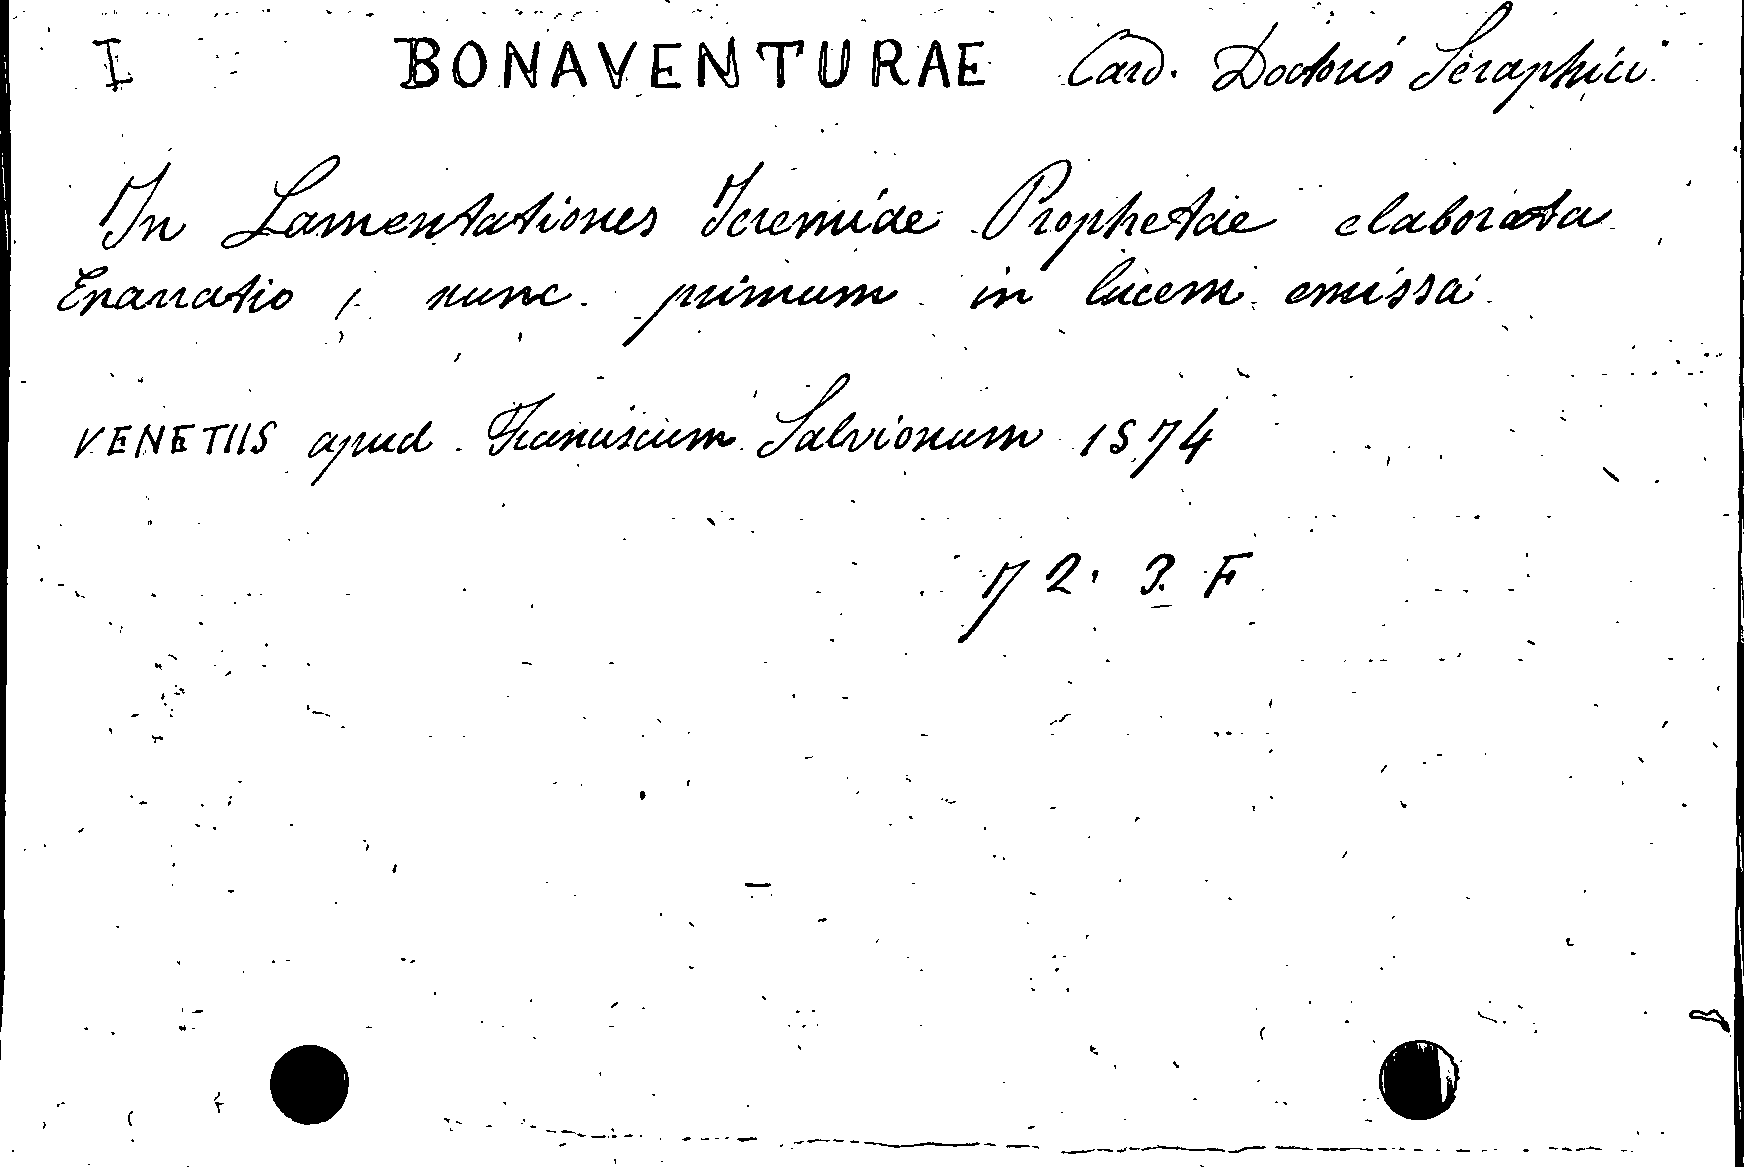 I BONAVENTURAE Card. Doctoris Seraphici
In Lamentationes Jeremiae Prophetae elaborata
Enarratio, nunc primum in lucem emissa
VENETIIS apud Franciscum Salvionum 1574
72. 3. F